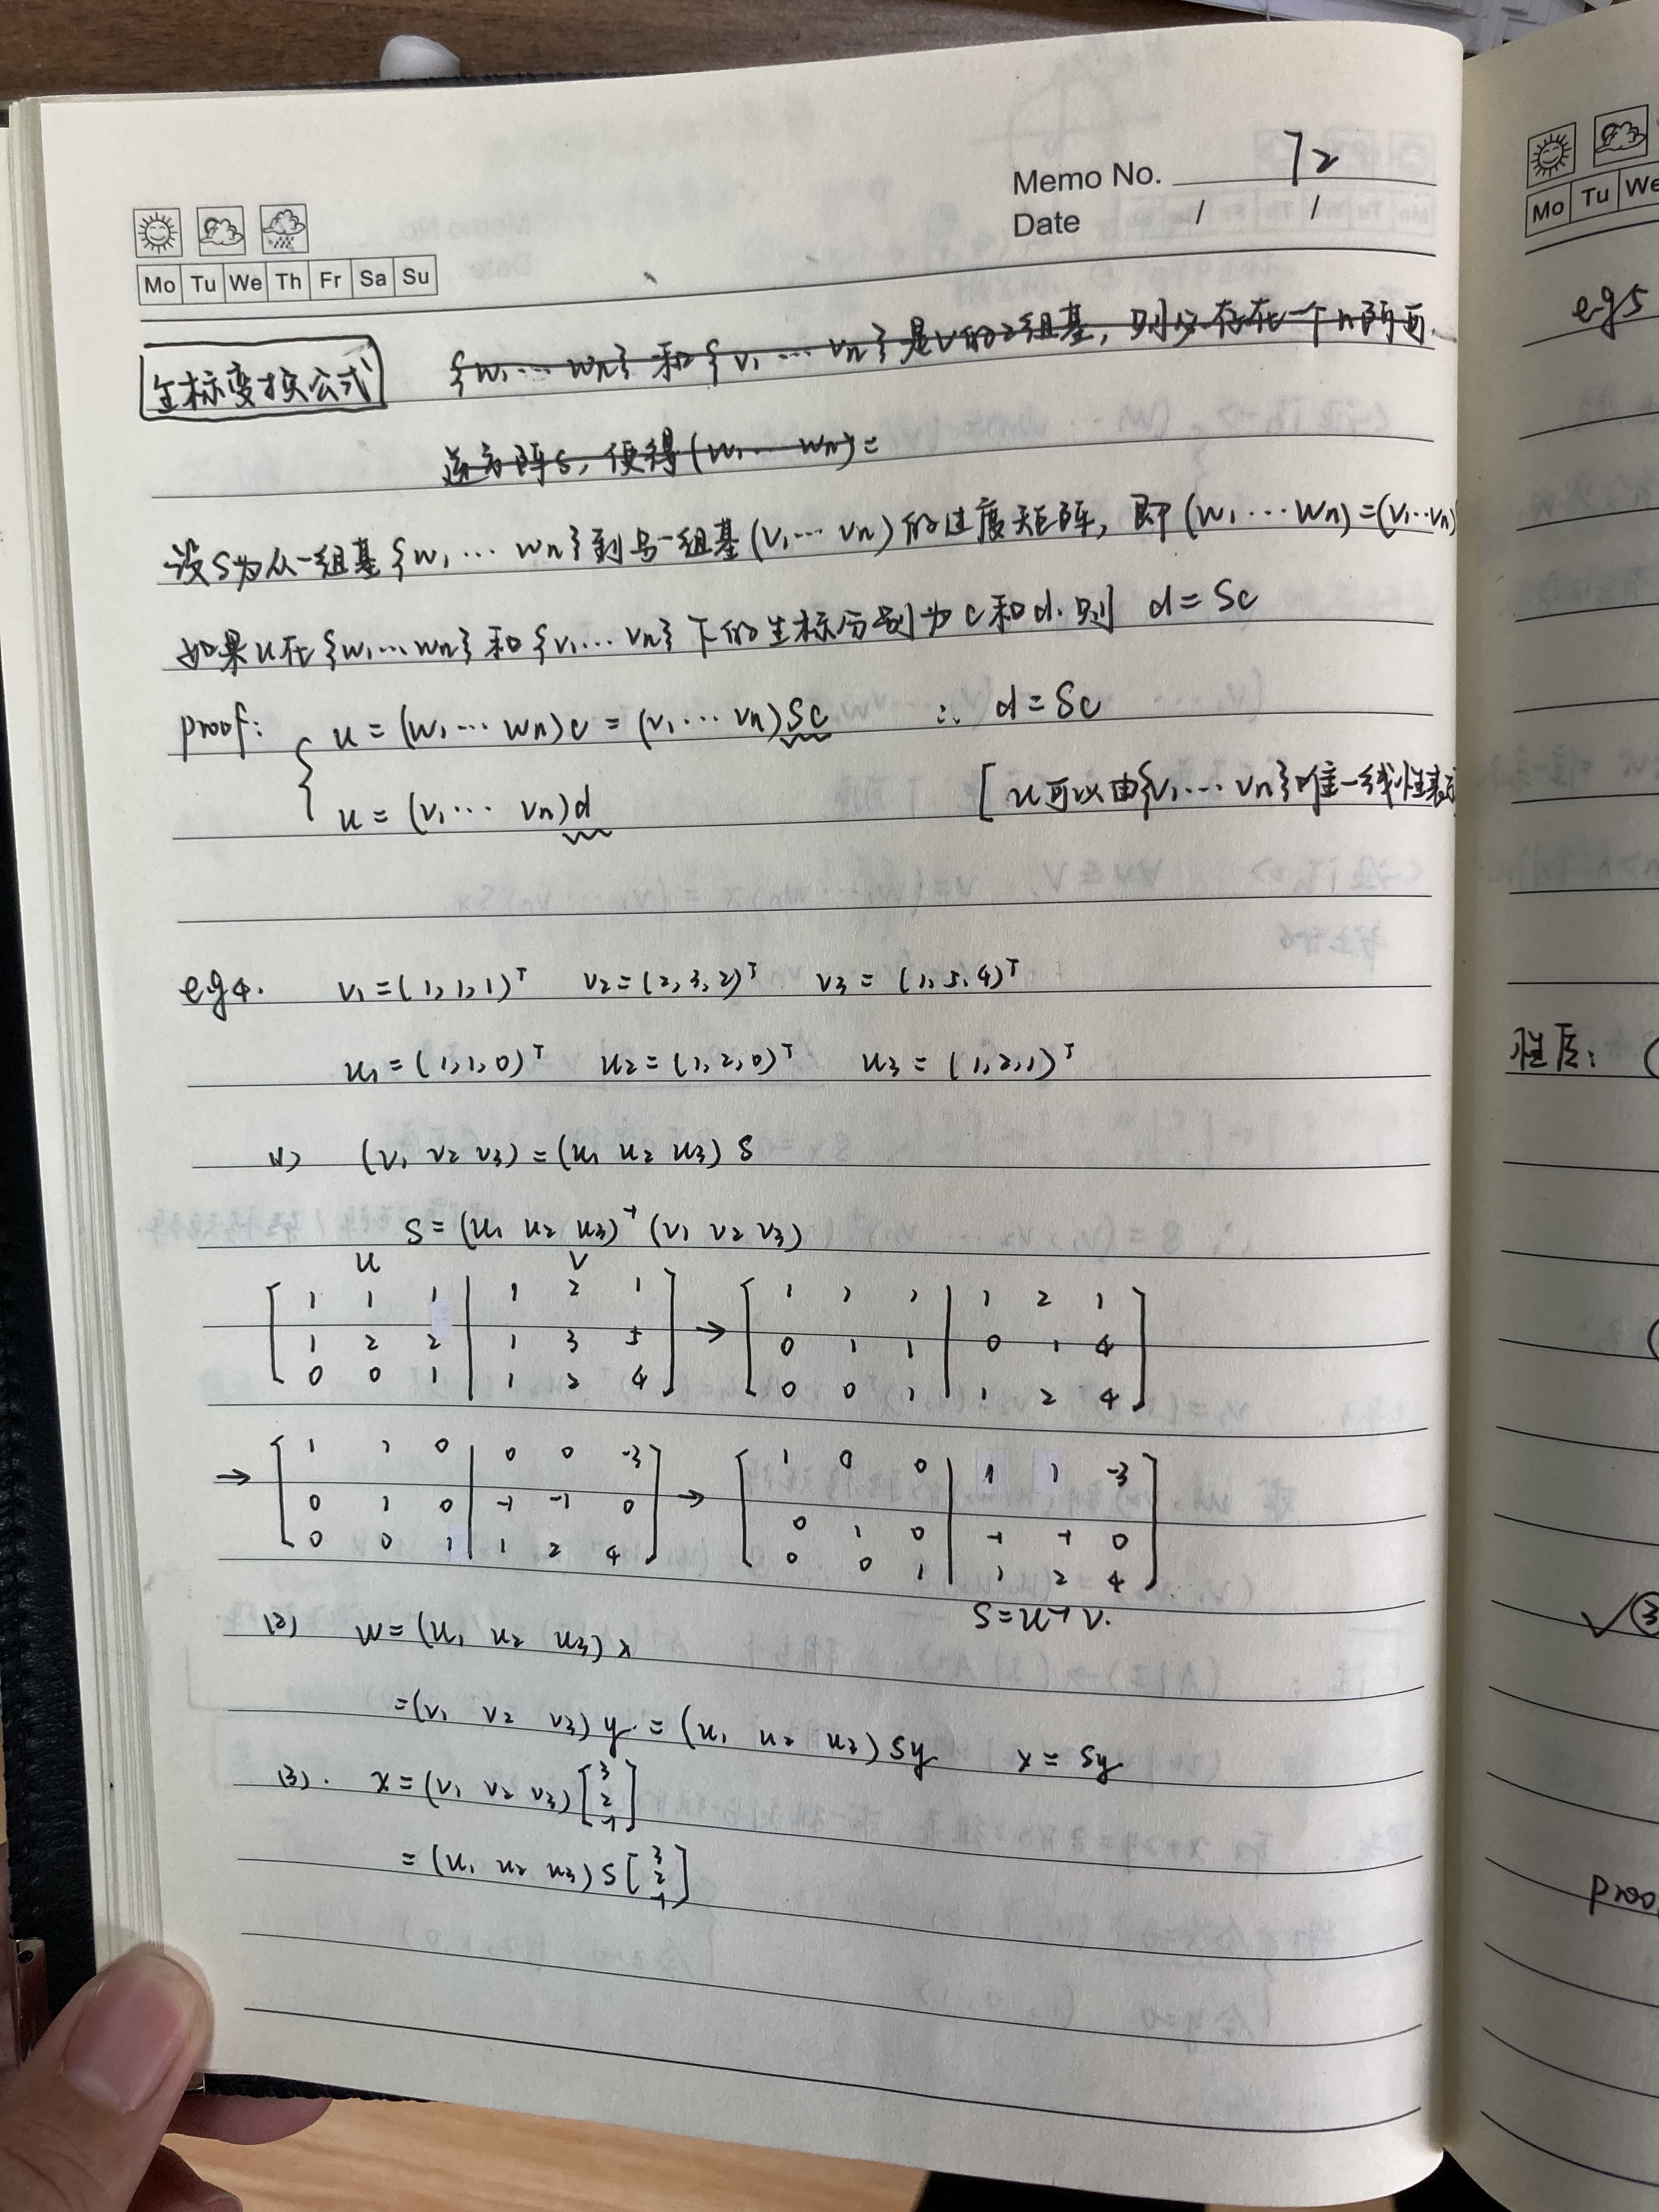 Memo No. 72
Date / /
Mo Tu We Th Fr Sa Su
坐标变换公式
{w₁ … wn} 和 {v₁ … vn} 是V的2组基, 则必存在一个n阶可
逆方阵S, 使得(w₁ … wn) =
设S为从一组基{w₁ … wn}到另一组基(v₁ … vn)的过度矩阵, 即(w₁ … wn) = (v₁ … vn)
如果u在{w₁ … wn}和{v₁ … vn}下的坐标分别为c和d. 则 d = Sc
proof: { u = (w₁ … wn)c = (v₁ … vn)Sc ∴ d = Sc
u = (v₁ … vn)d [u可以由{v₁ … vn}唯一线性表示
eg4. v₁ = (1,1,1)ᵀ v₂ = (2,3,2)ᵀ v₃ = (1,5,4)ᵀ
u₁ = (1,1,0)ᵀ u₂ = (1,2,0)ᵀ u₃ = (1,2,1)ᵀ
(1) (v₁ v₂ v₃) = (u₁ u₂ u₃) S
S = (u₁ u₂ u₃)⁻¹ (v₁ v₂ v₃)
u v
[ 1 1 1 | 1 2 1 ] → [ 1 1 1 | 1 2 1 ]
[ 1 2 2 | 1 3 5 ] [ 0 1 1 | 0 1 4 ]
[ 0 0 1 | 1 2 4 ] [ 0 0 1 | 1 2 4 ]
→ [ 1 1 0 | 0 0 -3 ] → [ 1 0 0 | 1 1 -3 ]
[ 0 1 0 | -1 -1 0 ] [ 0 1 0 | -1 -1 0 ]
[ 0 0 1 | 1 2 4 ] [ 0 0 1 | 1 2 4 ]
S = u⁻¹ v.
(2) w = (u₁ u₂ u₃) x
= (v₁ v₂ v₃) y = (u₁ u₂ u₃) Sy x = Sy
(3). x = (v₁ v₂ v₃) [ 3 2 -1 ]
= (u₁ u₂ u₃) S [ 3 2 -1 ]
Mo Tu We
eg5
性质:
✓ ③
proo